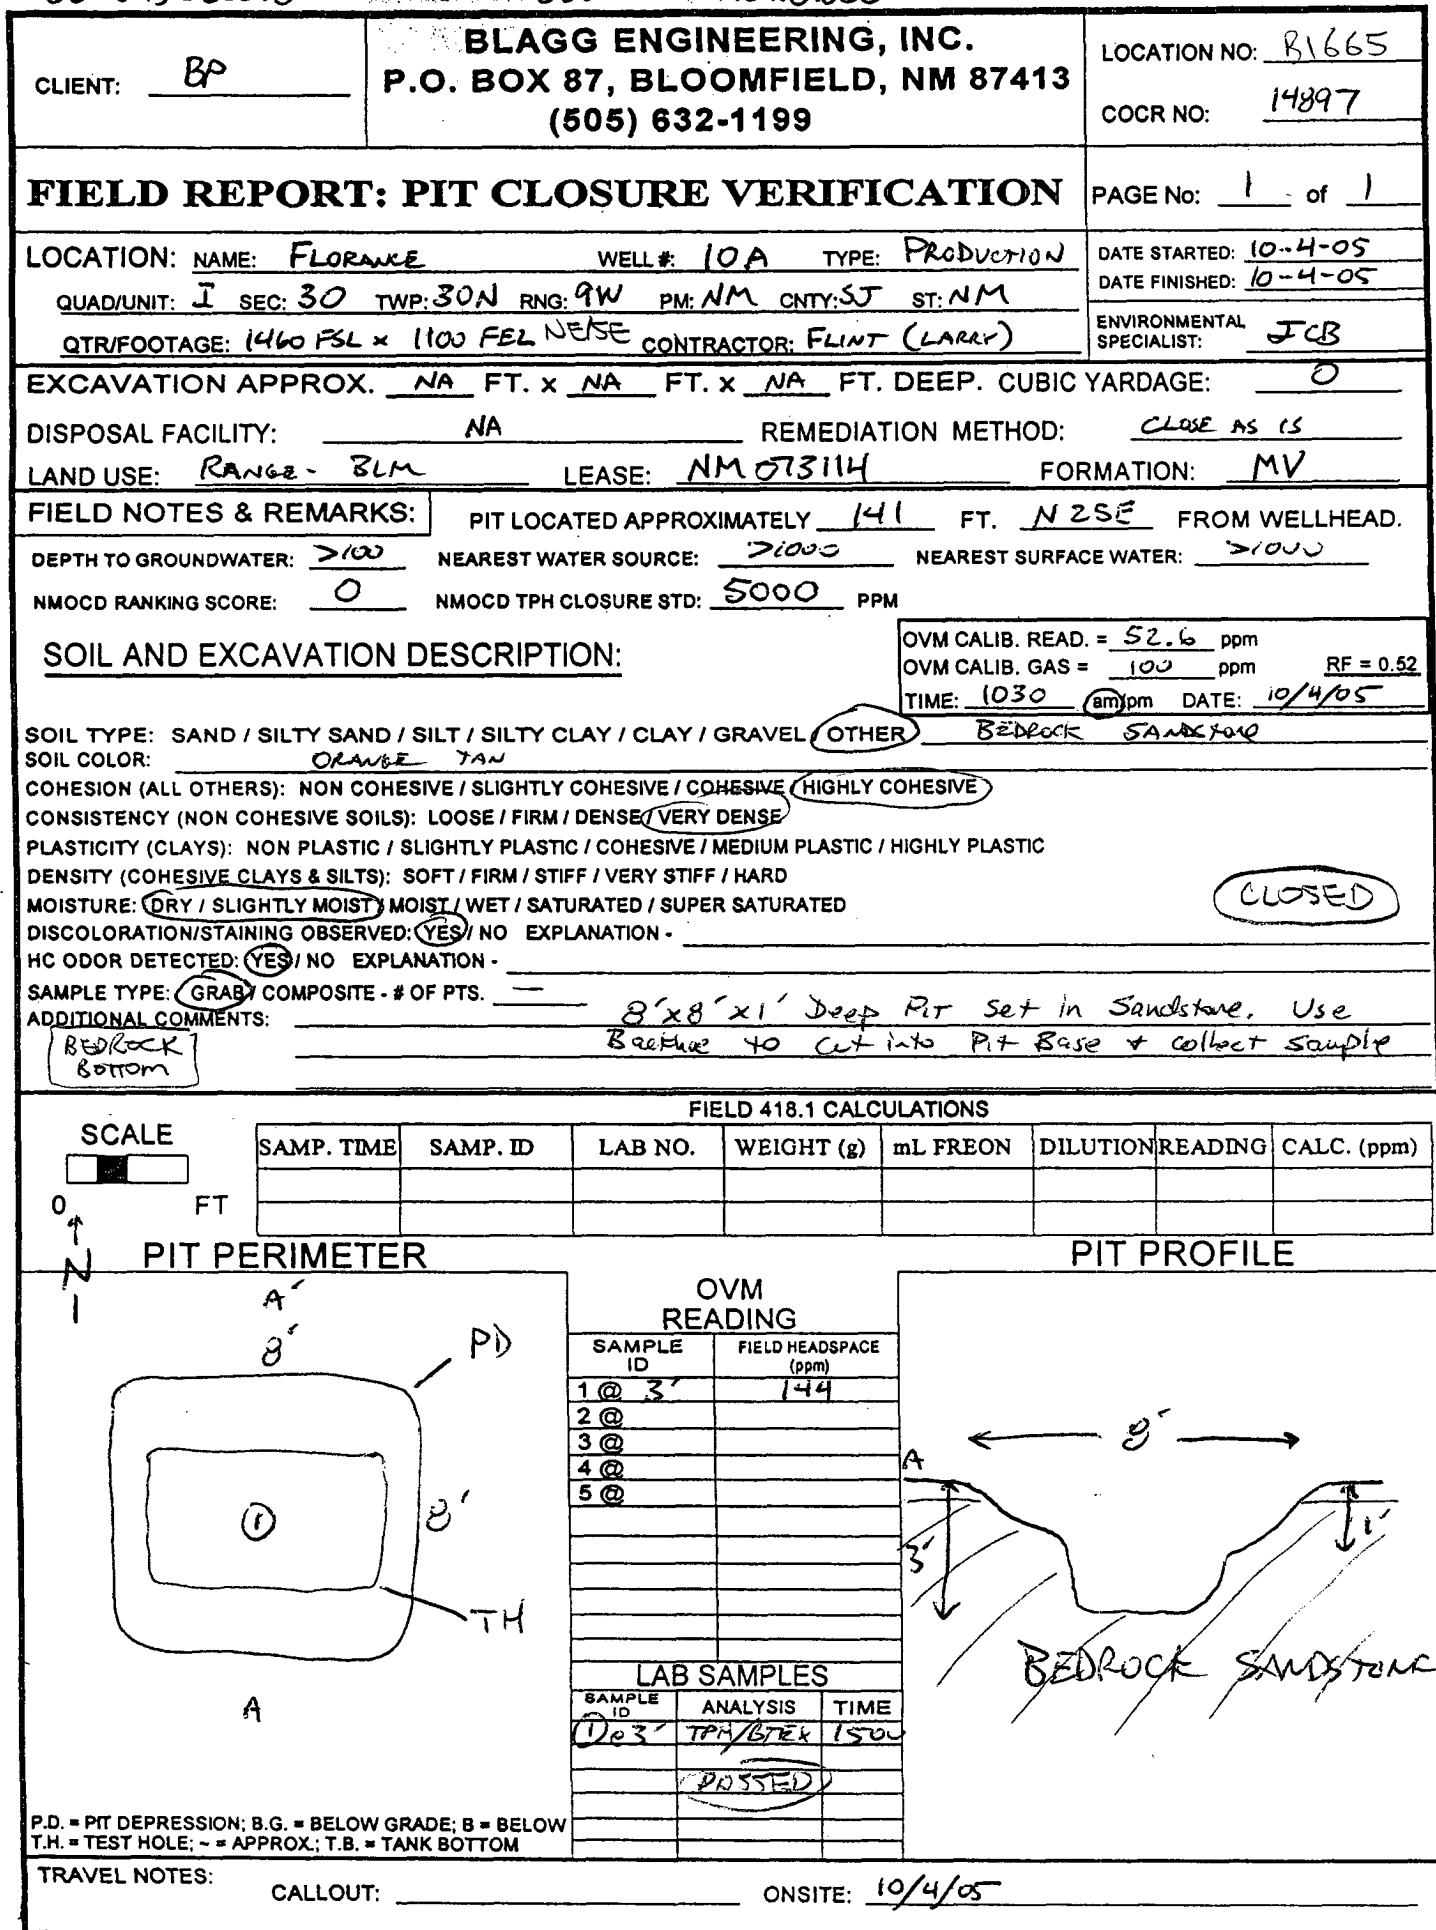 BLAGG ENGINEERING, INC.
P.O. BOX 87, BLOOMFIELD, NM 87413
(505) 632-1199
CLIENT: BP
LOCATION NO: B1665
COCR NO: 14897
FIELD REPORT: PIT CLOSURE VERIFICATION
PAGE No: 1 of 1
LOCATION: NAME: FLORANCE WELL #: 10A TYPE: PRODUCTION
QUAD/UNIT: I SEC: 30 TWP: 30N RNG: 9W PM: NM CNTY: SJ ST: NM
QTR/FOOTAGE: 1460 FSL x 1100 FEL NE/SE CONTRACTOR: FLINT (LARRY)
DATE STARTED: 10-4-05
DATE FINISHED: 10-4-05
ENVIRONMENTAL
SPECIALIST: JCB
EXCAVATION APPROX. NA FT. x NA FT. x NA FT. DEEP. CUBIC YARDAGE: 0
DISPOSAL FACILITY: NA REMEDIATION METHOD: CLOSE AS IS
LAND USE: RANGE - BLM LEASE: NM 073114 FORMATION: MV
FIELD NOTES & REMARKS: PIT LOCATED APPROXIMATELY 141 FT. N 25E FROM WELLHEAD.
DEPTH TO GROUNDWATER: >100 NEAREST WATER SOURCE: >1000 NEAREST SURFACE WATER: >1000
NMOCD RANKING SCORE: 0 NMOCD TPH CLOSURE STD: 5000 PPM
SOIL AND EXCAVATION DESCRIPTION:
OVM CALIB. READ. = 52.6 ppm
OVM CALIB. GAS = 100 ppm RF = 0.52
TIME: 1030 am/pm DATE: 10/4/05
SOIL TYPE: SAND / SILTY SAND / SILT / SILTY CLAY / CLAY / GRAVEL / OTHER BEDROCK SANDSTONE
SOIL COLOR: ORANGE TAN
COHESION (ALL OTHERS): NON COHESIVE / SLIGHTLY COHESIVE / COHESIVE / HIGHLY COHESIVE
CONSISTENCY (NON COHESIVE SOILS): LOOSE / FIRM / DENSE / VERY DENSE
PLASTICITY (CLAYS): NON PLASTIC / SLIGHTLY PLASTIC / COHESIVE / MEDIUM PLASTIC / HIGHLY PLASTIC
DENSITY (COHESIVE CLAYS & SILTS): SOFT / FIRM / STIFF / VERY STIFF / HARD
MOISTURE: DRY / SLIGHTLY MOIST / MOIST / WET / SATURATED / SUPER SATURATED
CLOSED
DISCOLORATION/STAINING OBSERVED: YES / NO EXPLANATION -
HC ODOR DETECTED: YES / NO EXPLANATION -
SAMPLE TYPE: GRAB / COMPOSITE - # OF PTS. —
ADDITIONAL COMMENTS: 8'x8'x1' Deep Pit Set in Sandstone. Use
Backhoe to Cut into Pit Base & Collect Sample
BEDROCK
BOTTOM
FIELD 418.1 CALCULATIONS
SCALE
0 FT
SAMP. TIME SAMP. ID LAB NO. WEIGHT (g) mL FREON DILUTION READING CALC. (ppm)
N
PIT PERIMETER
A'
8'
PD
8'
1
TH
A
OVM
READING
SAMPLE
ID
FIELD HEADSPACE
(ppm)
1 @ 3' 144
2 @
3 @
4 @
5 @
LAB SAMPLES
SAMPLE
ID
ANALYSIS TIME
1 @ 3' TPH/BTEX 1500
PASSED
PIT PROFILE
8'
A
3'
1'
BEDROCK SANDSTONE
P.D. = PIT DEPRESSION; B.G. = BELOW GRADE; B = BELOW
T.H. = TEST HOLE; ~ = APPROX.; T.B. = TANK BOTTOM
TRAVEL NOTES:
CALLOUT: ONSITE: 10/4/05